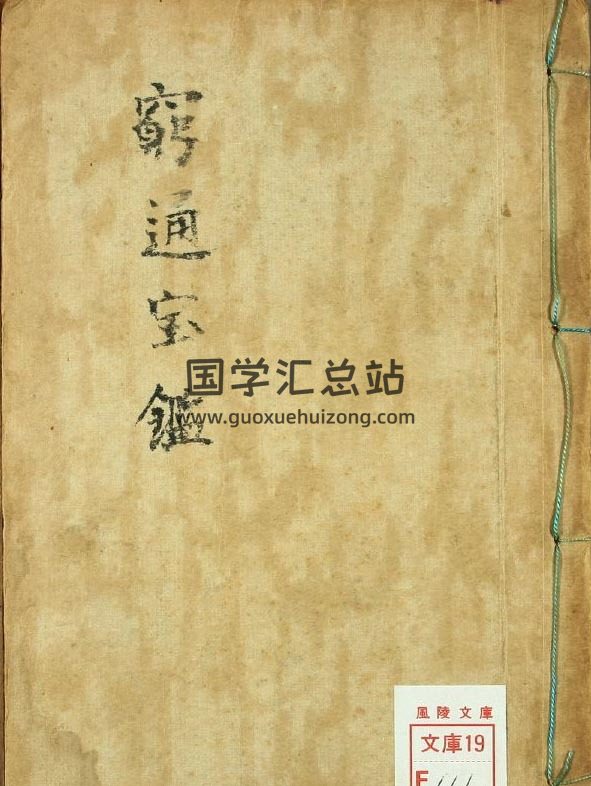 窮通宝鑑
国学汇总站
www.guoxuehuizong.com
風陵文庫
文庫19
F